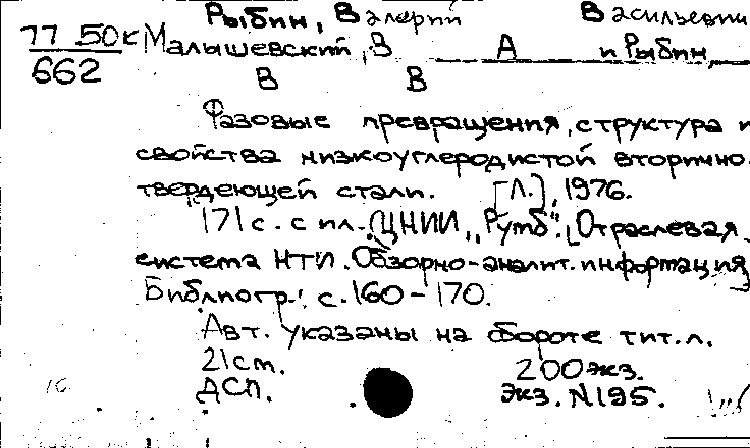 Рыбин, Валерий Васильевич
77 50к Малышевский, В А и Рыбин,
662 В В
Фазовые превращения, структура и
свойства низкоуглеродистой вторично
твердеющей стали. [Л.], 1976.
171 с. с ил. (ЦНИИ "Румб". Отраслевая
система НТИ. Обзорно-аналит. информация)
Библиогр.: с. 160-170.
Авт. указаны на обороте тит. л.
21см. 200экз.
ДСП. Экз. N195.